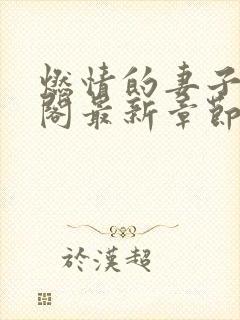 燃情的妻子
閣最新章節
於漢超